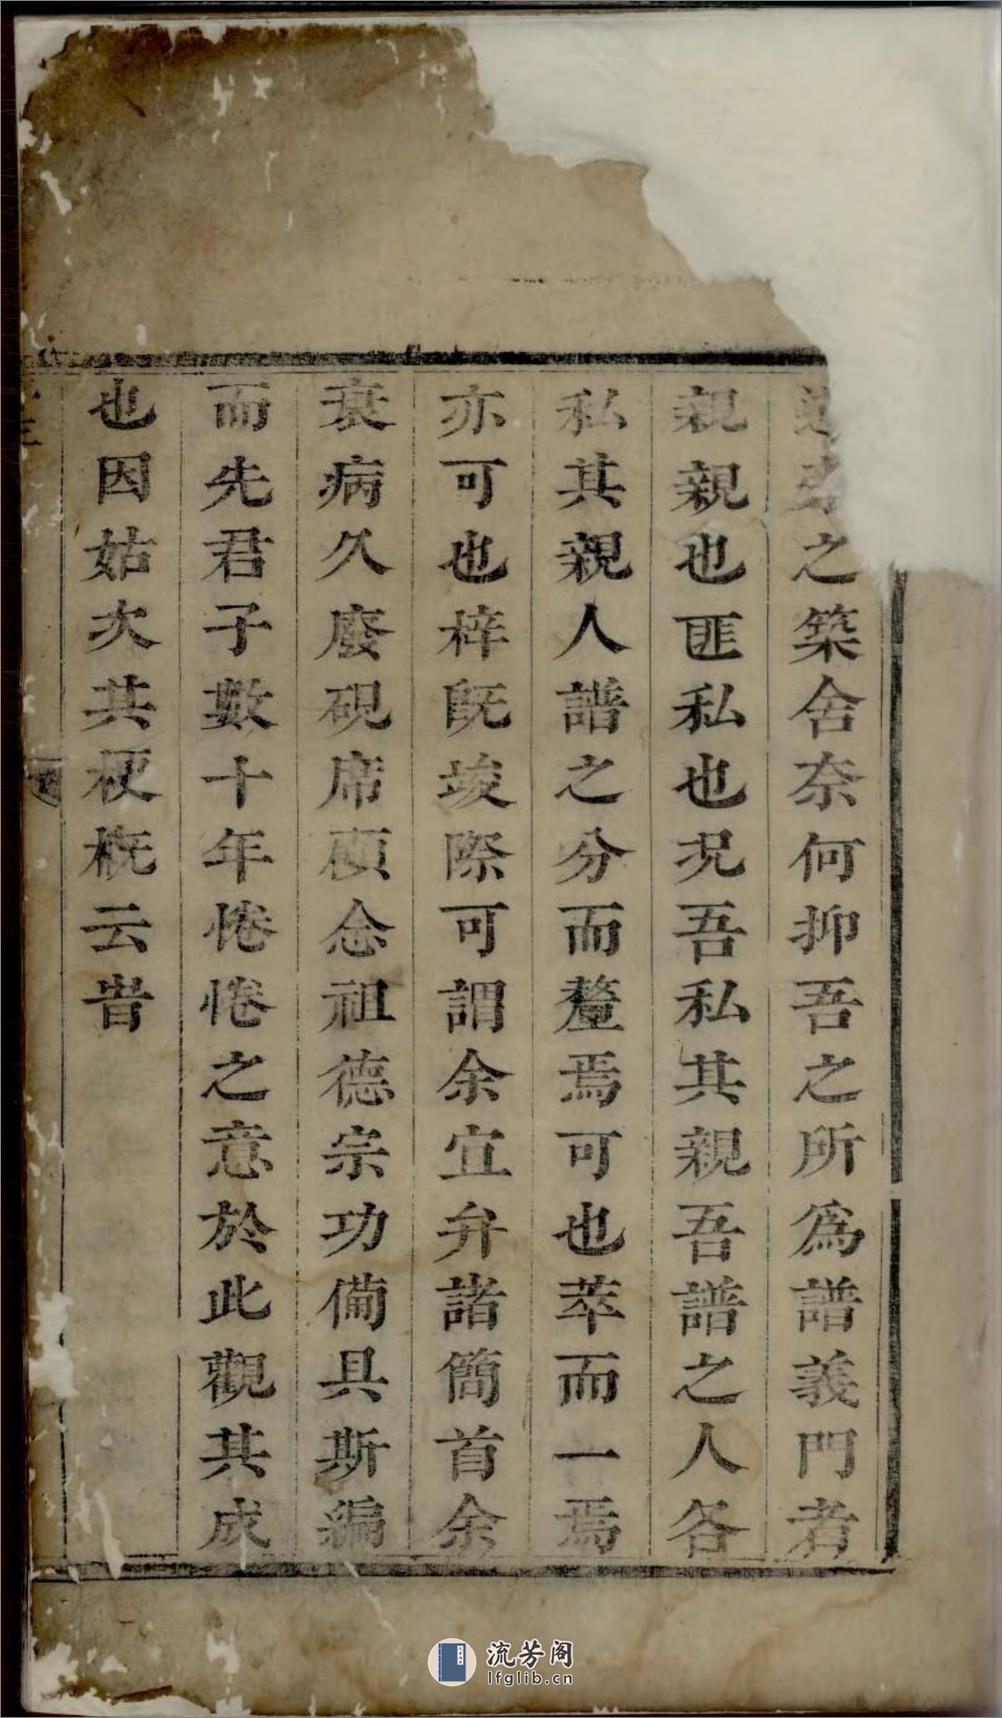 之築舍奈何抑吾之所為譜義門者
親親也匪私也況吾私其親吾譜之人各
私其親人譜之分而釐焉可也萃而一焉
亦可也梓既竣際可謂余宜弁諸簡首余
衰病久廢硯席顧念祖德宗功備具斯編
而先君子數十年惓惓之意於此觀其成
也因姑次其梗概云旹
流芳阁
lfglib.cn